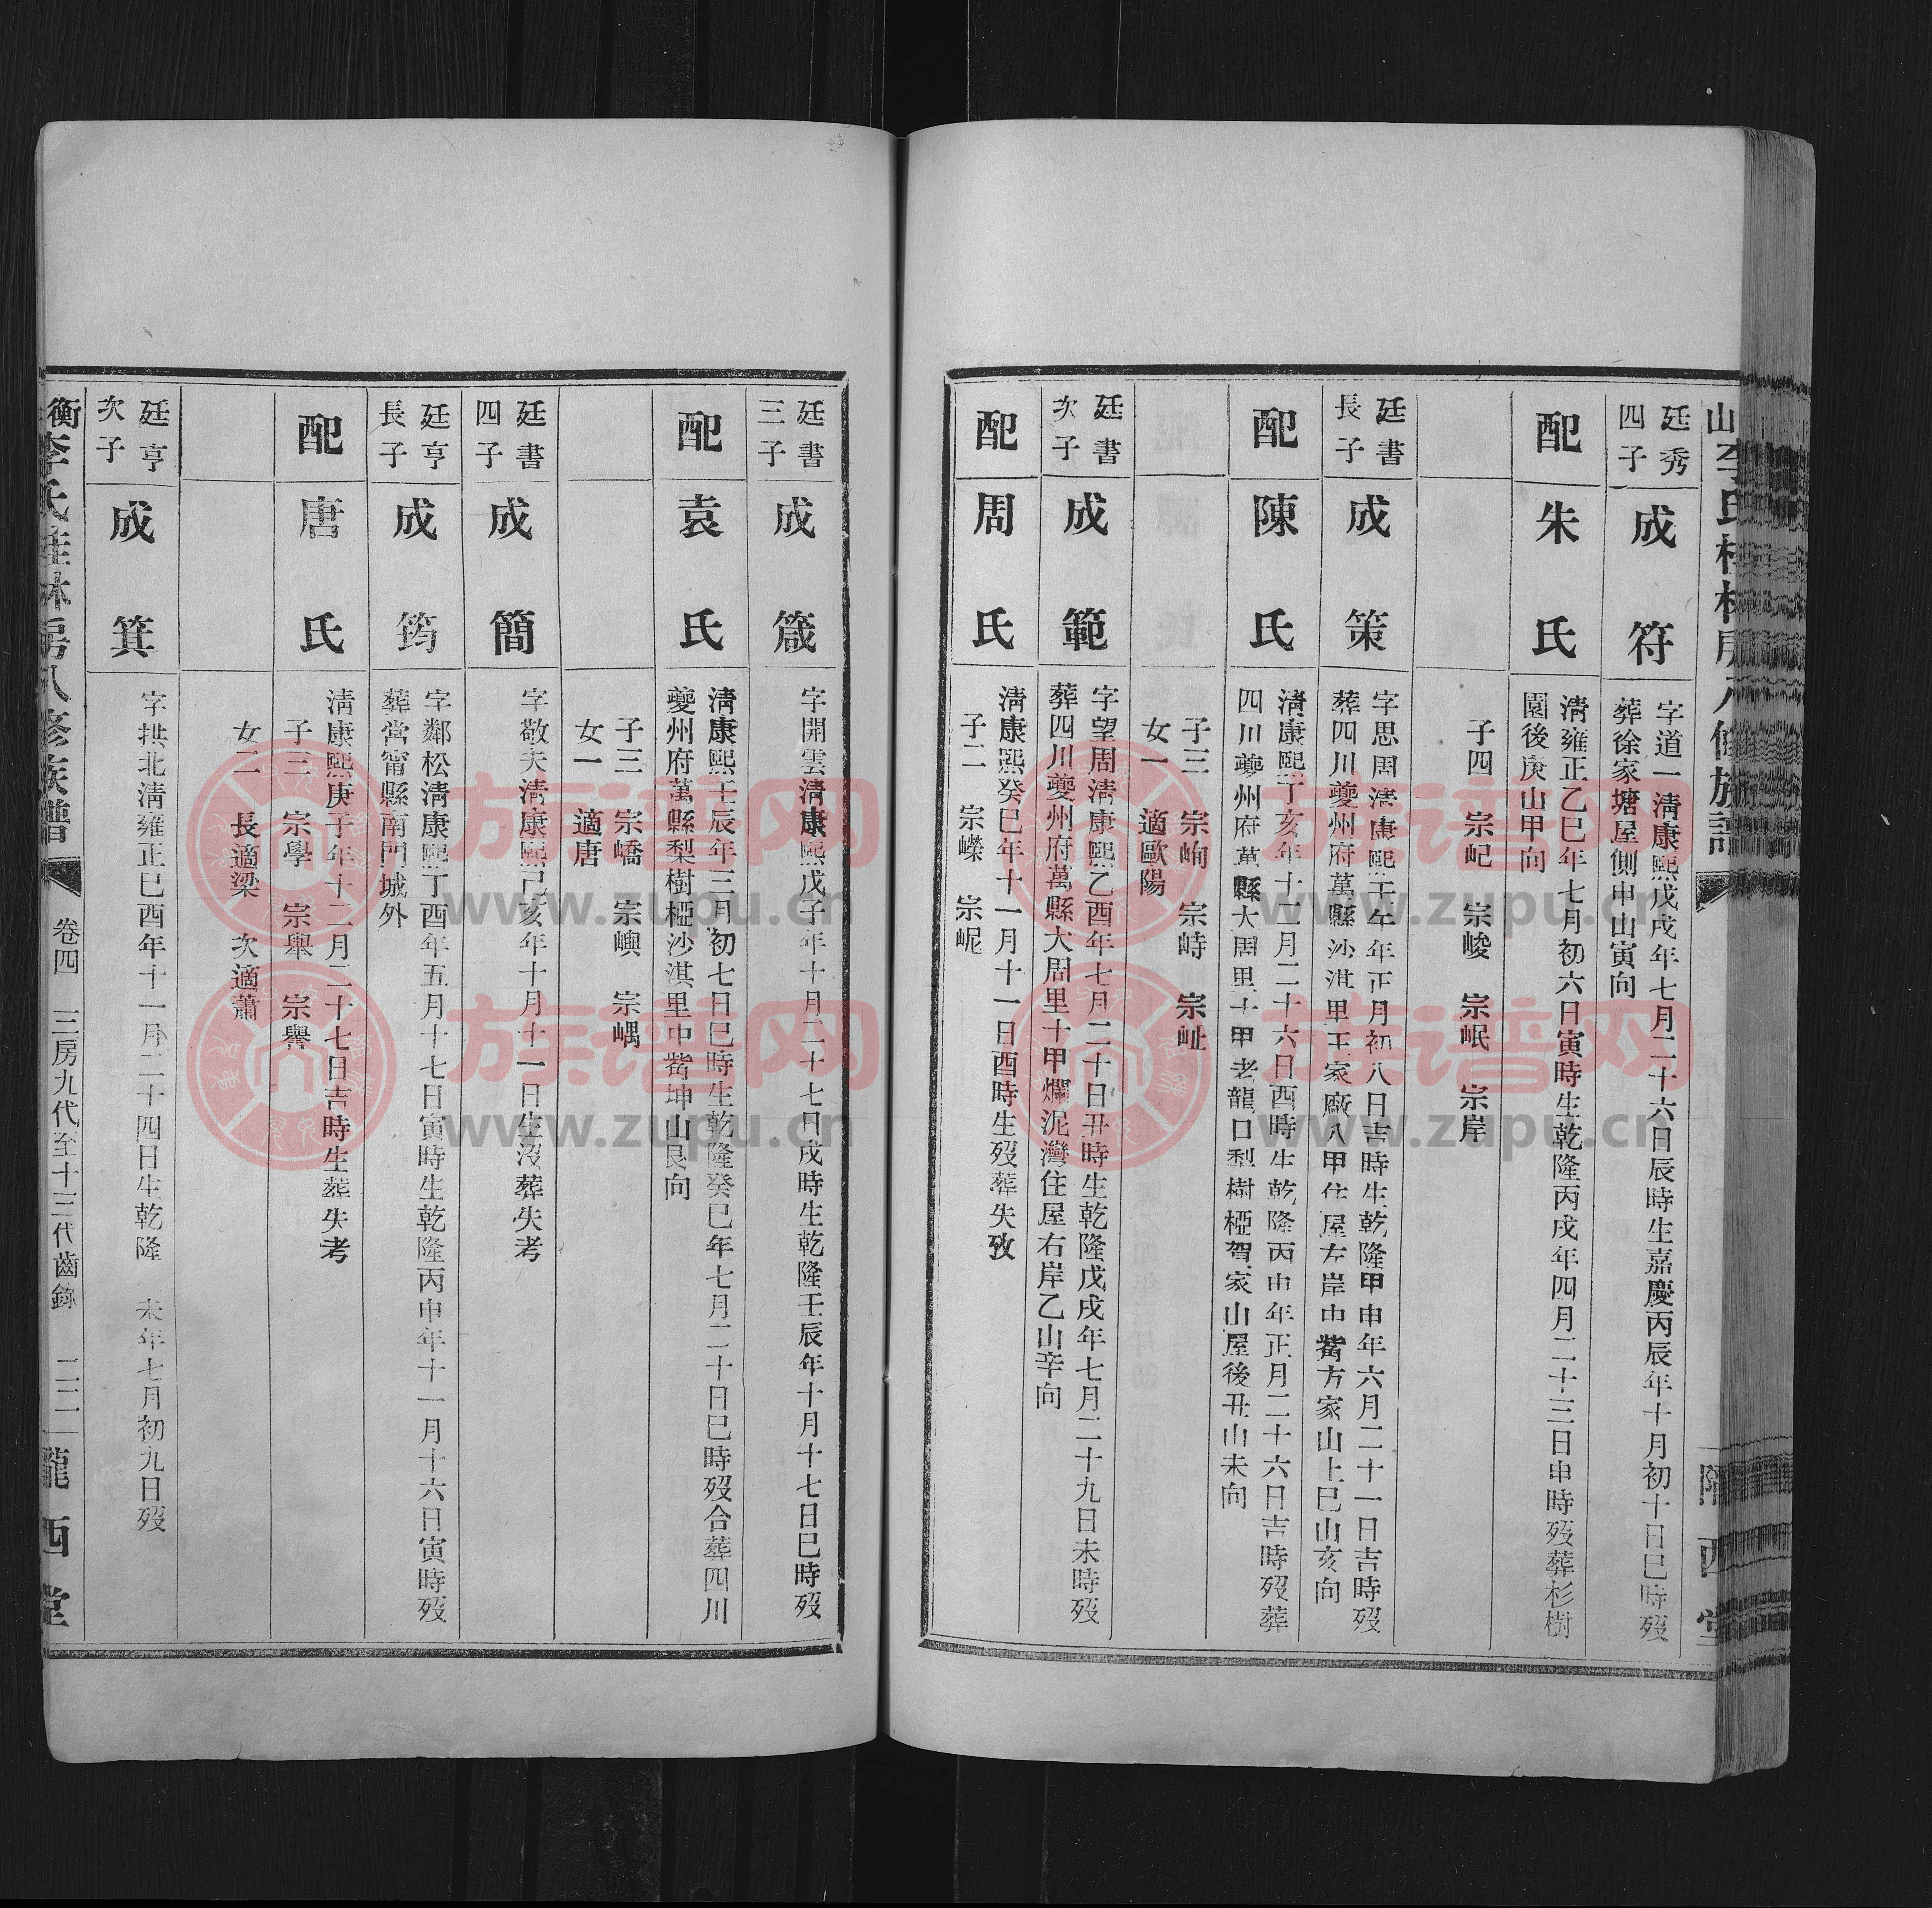 廷秀
四子
成符
字道一清康熙戊戌年七月二十六日辰時生嘉慶丙辰年十月初十日巳時歿
葬徐家塘屋側申山寅向
配
朱氏
清雍正乙巳年七月初六日寅時生乾隆丙戌年四月二十三日申時歿葬杉樹
園後庚山甲向
子四 宗屺 宗峻 宗岷 宗岸
廷書
長子
成策
字思周清康熙壬午年正月初八日吉時生乾隆甲申年六月二十一日吉時歿
葬四川夔州府萬縣沙淇里王家廠八甲住屋左岸中嘴方家山上巳山亥向
配
陳氏
清康熙丁亥年十二月二十六日酉時生乾隆丙申年正月二十六日吉時歿葬
四川夔州府萬縣大周里十甲老龍口梨樹椏賀家山屋後丑山未向
子三 宗峋 宗峙 宗址
女一 適歐陽
廷書
次子
成範
字望周清康熙乙酉年七月二十日丑時生乾隆戊戌年七月二十九日未時歿
葬四川夔州府萬縣大周里十甲爛泥灣住屋右岸乙山辛向
配
周氏
清康熙癸巳年十一月十一日酉時生歿葬失攷
子二 宗嶸 宗岮
廷書
三子
成箴
字開雲清康熙戊子年十月二十七日戌時生乾隆壬辰年十月十七日巳時歿
配
袁氏
清康熙壬辰年三月初七日巳時生乾隆癸巳年七月二十日巳時歿合葬四川
夔州府萬縣梨樹椏沙淇里中嘴坤山艮向
子三 宗嶠 宗嶼 宗嵎
女一 適唐
廷書
四子
成簡
字敬夫清康熙己亥年十月十一日生沒葬失考
廷亨
長子
成筠
字鄰松清康熙丁酉年五月十七日寅時生乾隆丙申年十一月十六日寅時歿
葬常甯縣南門城外
配
唐氏
清康熙庚子年十二月二十七日吉時生葬失考
子三 宗學 宗舉 宗譽
女二 長適梁 次適蕭
廷亨
次子
成箕
字拱北清雍正巳酉年十一月二十四日生乾隆 未年七月初九日歿
衡
李氏桂林房八修族譜
卷四 三房九代至十三代齒錄 二二一
隴西堂
族谱网
www.zupu.cn
族谱网
www.zupu.cn
族谱网
www.zupu.cn
族谱网
www.zupu.cn